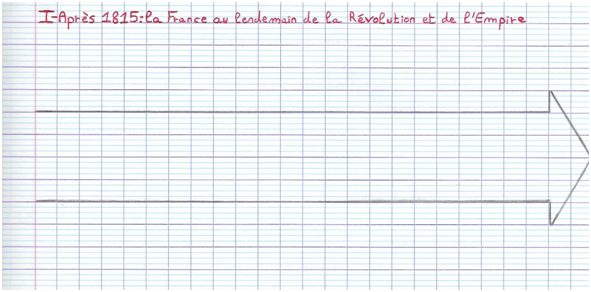 I-Après 1815: la France au lendemain de la Révolution et de l'Empire